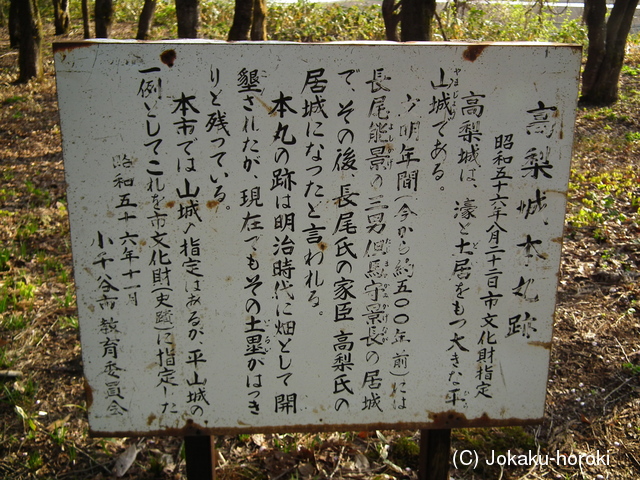 高梨城本丸跡
昭和五十六年八月二十二日 市文化財指定
高梨城は、濠と土居をもつ大きな平
山城である。
文明年間(今から約五〇〇年前)には
長尾能景の三男但馬守景長の居城
で、その後、長尾氏の家臣高梨氏の
居城になったと言われる。
本丸の跡は明治時代に畑として開
墾されたが、現在でもその土塁がはっき
りと残っている。
本市では山城の指定はあるが、平山城の
一例としてこれを市文化財(史蹟)に指定した
昭和五十六年十一月
小千谷市教育委員会
(C) Jokaku-horoki